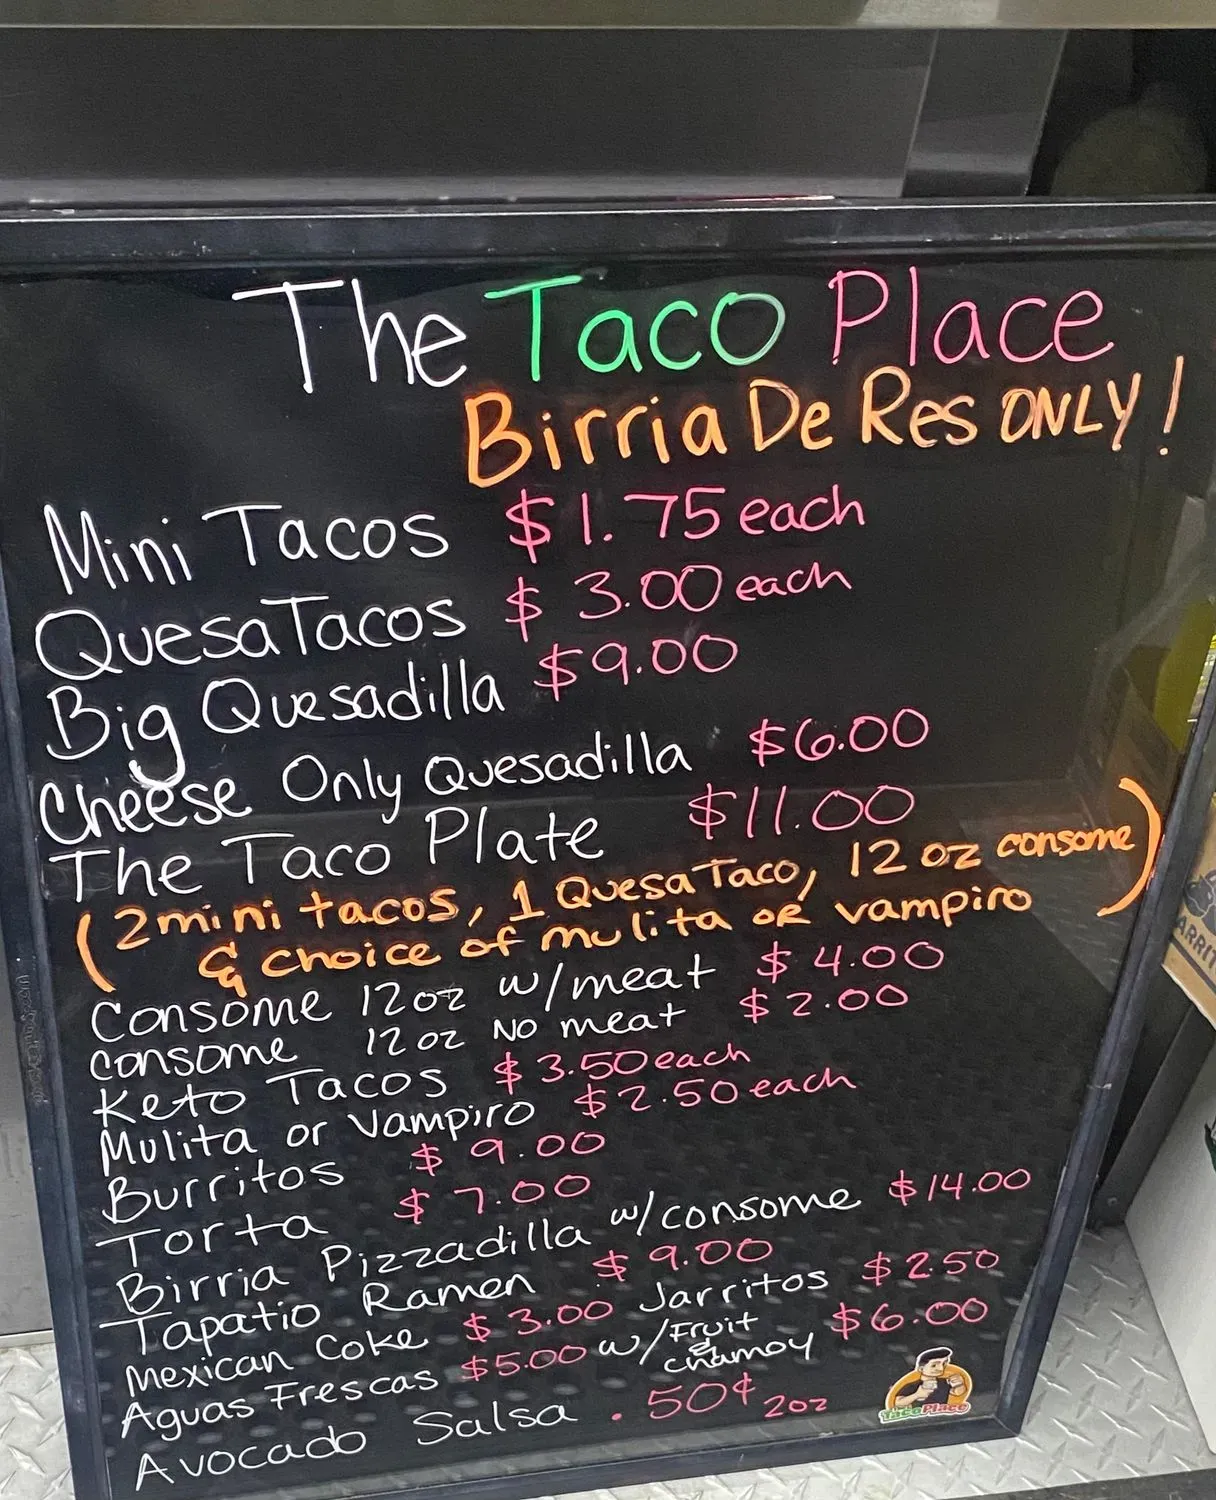 The Taco Place
Birria De Res ONLY!
Mini Tacos $1.75 each
QuesaTacos $3.00 each
Big Quesadilla $9.00
Cheese Only Quesadilla $6.00
The Taco Plate $11.00
(2 mini tacos, 1 QuesaTaco, 12 oz consome)
& choice of mulita or vampiro
Consome 12oz w/meat $4.00
consome 12oz No meat $2.00
Keto Tacos $3.50 each
Mulita or Vampiro $2.50 each
Burritos $9.00
Torta $7.00
Birria Pizzadilla w/consome $14.00
Tapatio Ramen $9.00
Mexican Coke $3.00 Jarritos $2.50
Aguas Frescas $5.00 w/Fruit & chamoy $6.00
Avocado Salsa .50¢ 2oz
TacoPlace